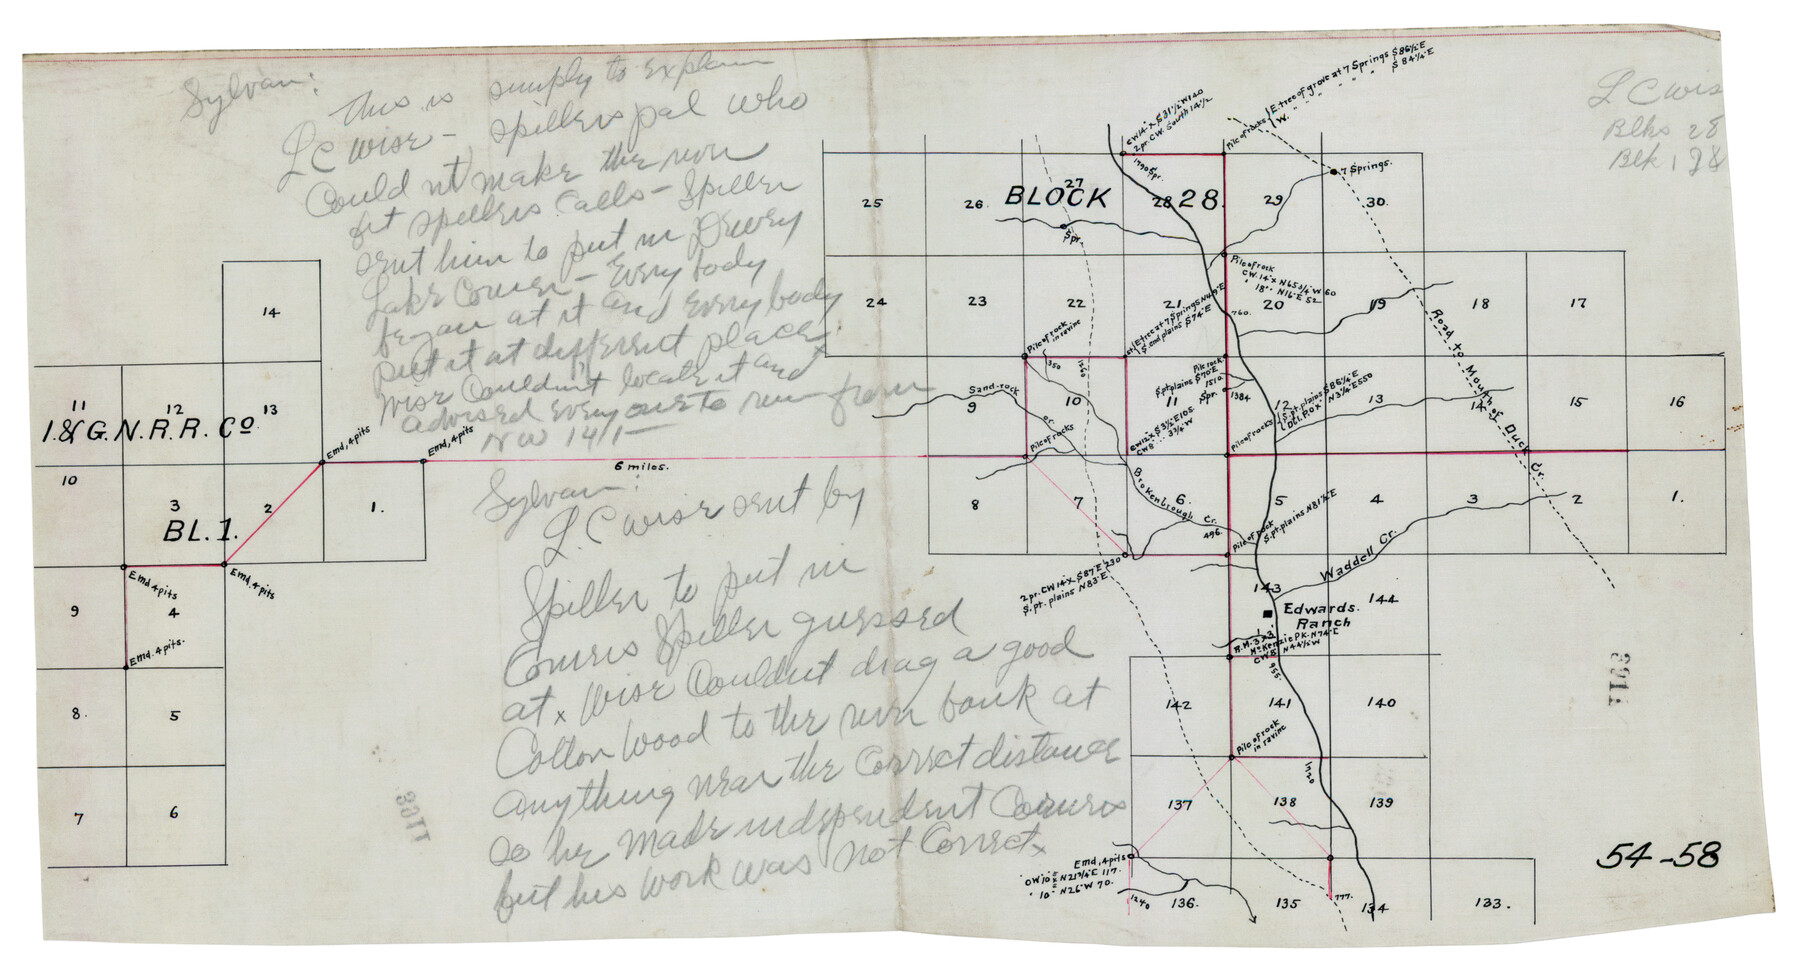 Sylvan:
This is simply to explain
L C Wise - Spillers pal who
Could nt make the run
fit spillers calls - Spiller
sent him to put in Drewry
Lake Corner - Every body
began at it and every body
put it at different places
Wise Couldn't locate it and
advised every one to run from
NW 1411
Sylvan:
L. C Wise sent by
Spiller to put in
Corners Spiller guessed
at x Wise Couldnt drag a good
Cotton Wood to the river bank at
anything near the Correct distance
so he made independent Corners
but his work was not Correct x
L C Wis
Blks 28
Blk 1 &
BLOCK 28.
25
26.
27
28
29
30.
24
23
22
21
20
19
18
17
9
10
11
12
13
14
15
16
8
7
6.
5
4
3
2
1.
143
144
142
141
140
137
138
139
136.
135
134
133.
I. & G. N. R. R. Co.
BL. 1.
14
11
12
13
10
3
2
1.
9
4
8.
5
7
6
Emd, 4 pits
Emd, 4 pits
Emd, 4 pits
Emd, 4 pits
Emd. 4 pits.
6 miles.
CW 14 X S 31½ W 140
2 pr. CW. South 14½
1790 Spr.
Pile of rocks
E. tree of grove at 7 Springs S 86½ E
W. " " " " S 84¼ E
7 Springs.
Spr.
Pile of rock
CW. 14 X N 65¾ W 60
" 18" " N 16 E 52
760.
Pile of rock
in ravine
350
1150
E tree at 7 Springs
S. end plains S 74 E
Pile rock
S. pt plains S 70 E
1510.
Spr.
1384
S. pt. plains S 86¼ E
N 3¼ E 550
Pile of rocks
CW 12 X S 3½ E 105
CW 8 " " 3¾ W
Sand-rock
cr.
Pile of rocks
Brokenbrough Cr.
496.
Pile of rock
S. pt. plains N 81¾ E
230
2 pr. CW 14 X S 87 E
S. pt. plains N 83 E
Road to Mouth of Duck Cr.
Waddell Cr.
Edwards.
Ranch
McKenzie PK. N 74 E
CW 8 N 44½ W
955
Pile of rock
in ravine
1120
Emd, 4 pits
CW 10 X N 21¾ E 117.
" 10" " N 26 W 70.
1240
777.
1133
1133
54-58